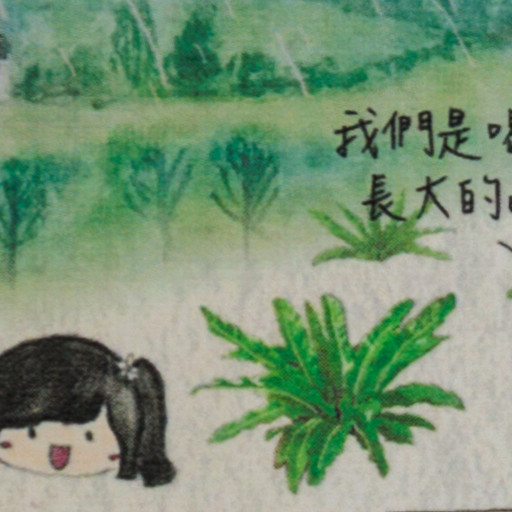 我們是喝
長大的